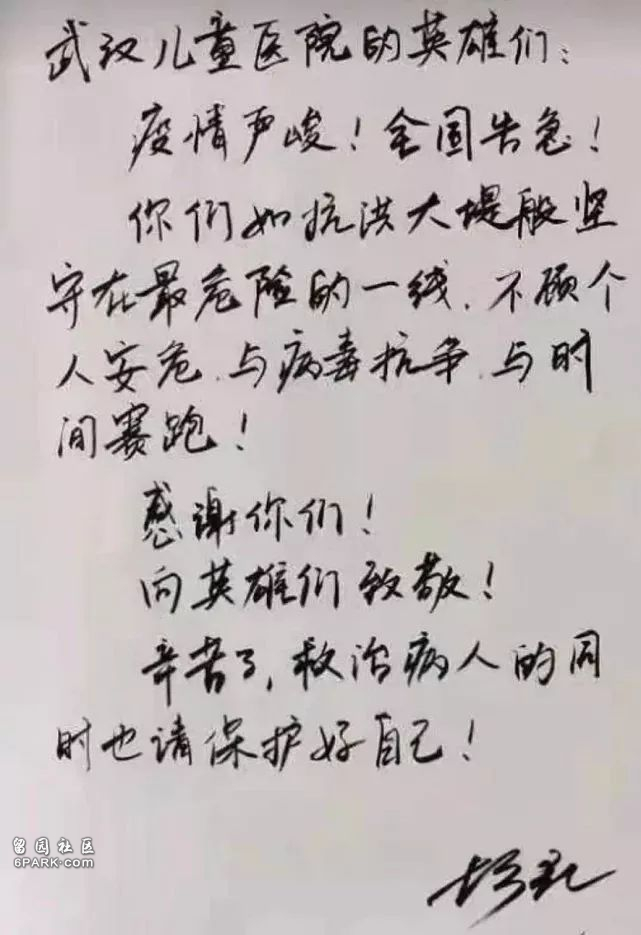 武汉儿童医院的英雄们:
疫情严峻!全国告急!
你们如抗洪大堤般坚
守在最危险的一线、不顾个
人安危、与病毒抗争、与时
间赛跑!
感谢你们!
向英雄们致敬!
辛苦了,救治病人的同
时也请保护好自己!
留园社区
6PARK.COM